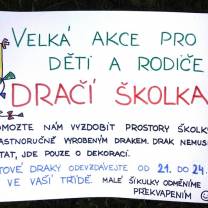 VELKÁ AKCE PRO
DĚTI A RODIČE
DRAČÍ ŠKOLKA
OMOZTE NÁM VYZDOBIT PROSTORY ŠKOLKY
LASTNORUČNĚ VYROBENÝM DRAKEM. DRAK NEMUS
TAT, JDE POUZE O DEKORACI.
TOVÉ DRAKY ODEVZDÁVEJTE OD 21. DO 24.
VE VAŠÍ TŘÍDĚ. MALÉ ŠIKULKY ODMĚNÍME
PŘEKVAPENÍM